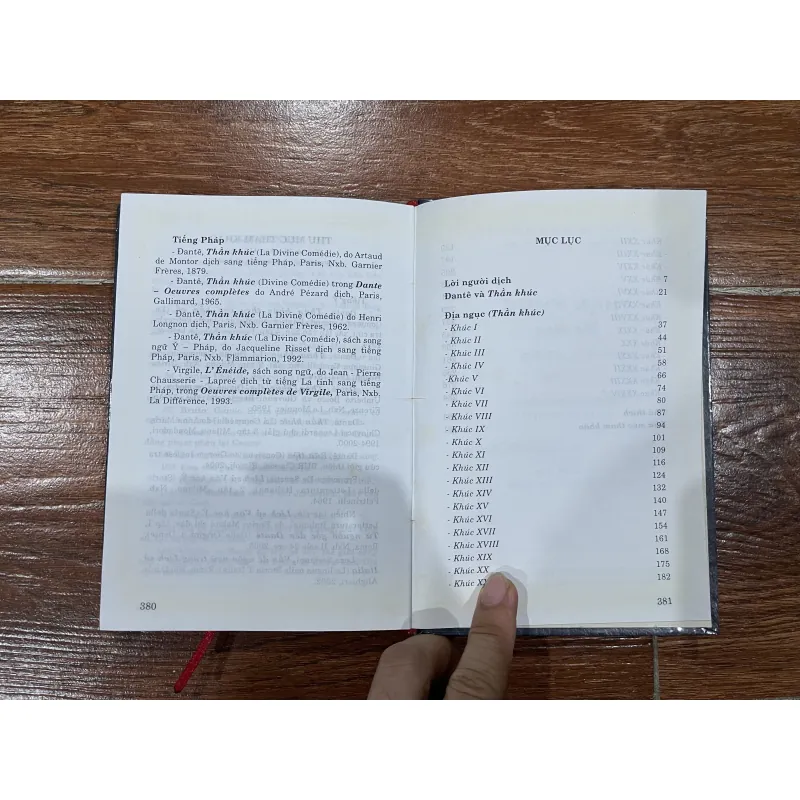 Tiếng Pháp
- Đantê, Thần khúc (La Divine Comédie), do Artaud
de Montor dịch sang tiếng Pháp, Paris, Nxb. Garnier
Frères, 1879.
- Đantê, Thần khúc (Divine Comédie) trong Dante
– Oeuvres complètes do André Pézard dịch, Paris,
Gallimard, 1965.
- Đantê, Thần khúc (La Divine Comédie) do Henri
Longnon dịch, Paris, Nxb. Garnier Frères, 1962.
- Đantê, Thần khúc (La Divine Comédie), sách song
ngữ Ý – Pháp, do Jacqueline Risset dịch sang tiếng
Pháp, Paris, Nxb. Flammarion, 1992.
- Virgile, L' Énéide, sách song ngữ, do Jean - Pierre
Chausserie - Lapreé dịch từ tiếng La tinh sang tiếng
Pháp, trong Oeuvres complètes de Virgile, Paris, Nxb.
La Différence, 1993.
380
MỤC LỤC
Lời người dịch 7
Đantê và Thần khúc 21
Địa ngục (Thần khúc)
- Khúc I 37
- Khúc II 44
- Khúc III 51
- Khúc IV 58
-Khúc V 66
- Khúc VI 74
- Khúc VII 80
- Khúc VIII 87
- Khúc IX 94
- Khúc X 101
- Khúc XI 109
- Khúc XII 116
- Khúc XIII 124
- Khúc XIV 132
- Khúc XV 140
- Khúc XVI 147
- Khúc XVII 154
- Khúc XVIII 161
- Khúc XIX 168
- Khúc XX 175
- Khúc 182
381